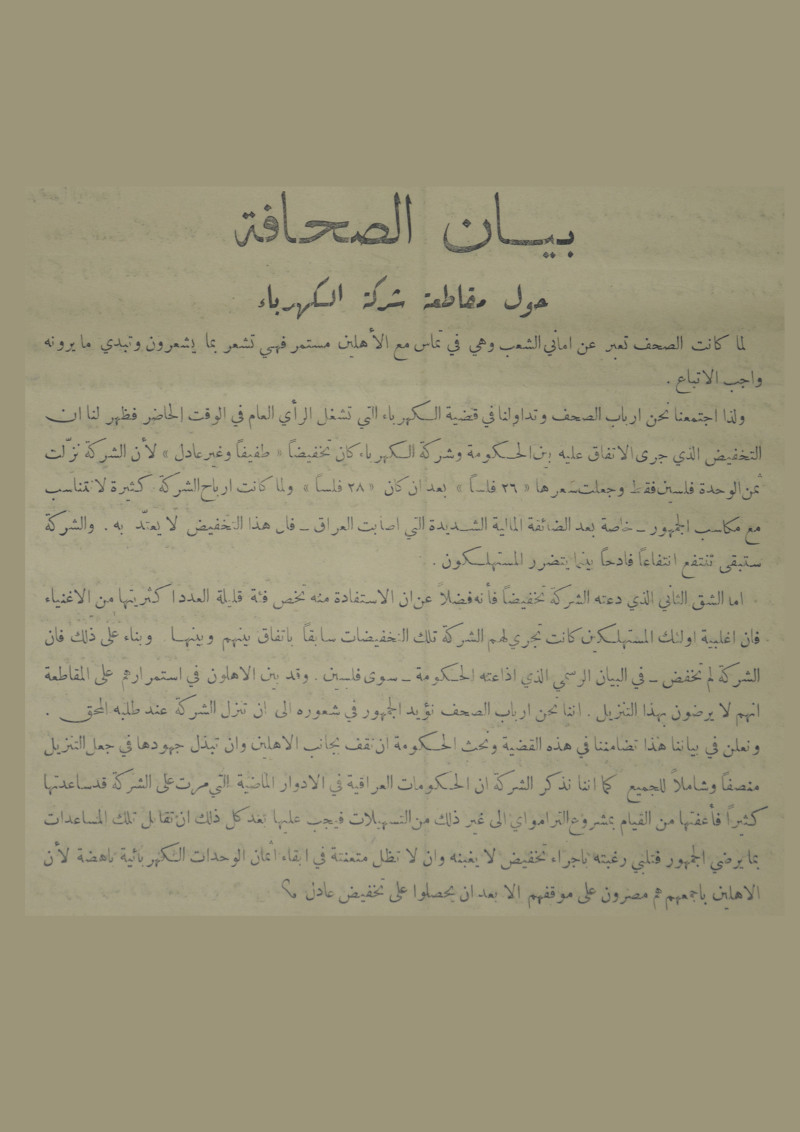 بيـــان الصحـافة
حول مقاطعة شركة الكهرباء
لما كانت الصحف تعبر عن اماني الشعب وهي في تماس مع الأهلين مستمر فهي تشعر بما يشعرون وتبدي ما يرونه
واجب الاتباع .
ولذا اجتمعنا نحن ارباب الصحف وتداولنا في قضية الكهرباء التي تشغل الرأي العام في الوقت الحاضر فظهر لنا ان
التخفيض الذي جرى الاتفاق عليه بين الحكومة وشركة الكهرباء كان تخفيضاً « طفيفاً وغير عادل » لأن الشركة نزّلت
ثمن الوحدة فلسين فقط وجعلت سعرها « ٢٦ فلساً » بعد ان كان « ٢٨ فلساً » ولما كانت ارباح الشركة كثيرة لا تتناسب
مع مكاسب الجمهور ــ خاصة بعد الضائقة المالية الشديدة التي اصابت العراق ــ فان هذا التخفيض لا يعتدّ به . والشركة
ستبقى تنتفع انتفاعاً فادحاً بينما يتضرر المستهلكون .
اما الشق الثاني الذي دعته الشركة تخفيضاً فأنه فضلاً عن ان الاستفادة منه تخص فئة قليلة العدد اكثريتها من الاغنياء
فان اغلبية اولئك المستهلكين كانت تجري لهم الشركة تلك التخفيضات سابقاً باتفاق بينهم وبينها وبناء على ذلك فان
الشركة لم تخفض ــ في البيان الرسمي الذي اذاعته الحكومة ــ سوى فلسين . وقد بين الاهلون في استمرارهم على المقاطعة
انهم لا يرضون بهذا التنزيل . اننا نحن ارباب الصحف نؤيد الجمهور في شعوره الى ان تنزل الشركة عند طلبه المحق .
ونعلن في بياننا هذا تضامننا في هذه القضية ونحث الحكومة ان تقف بجانب الاهلين وان تبذل جهودها في جعل التنزيل
منصفاً وشاملاً للجميع كما اننا نذكر الشركة ان الحكومات العراقية في الادوار الماضية التي مرت على الشركة قد ساعدتها
كثيراً فأعفتها من القيام بمشروع التراموای الى غير ذلك من التسهيلات فيجب عليها بعد كل ذلك ان تقابل تلك المساعدات
بما يرضي الجمهور فتلبي رغبته باجراء تخفيض لا يغبنه وان لا تظل متعنتة في ابقاء اثمان الوحدات الكهربائية باهضة لأن
الاهلين باجمعهم هم مصرون على موقفهم الا بعد ان يحصلوا على تخفيض عادل